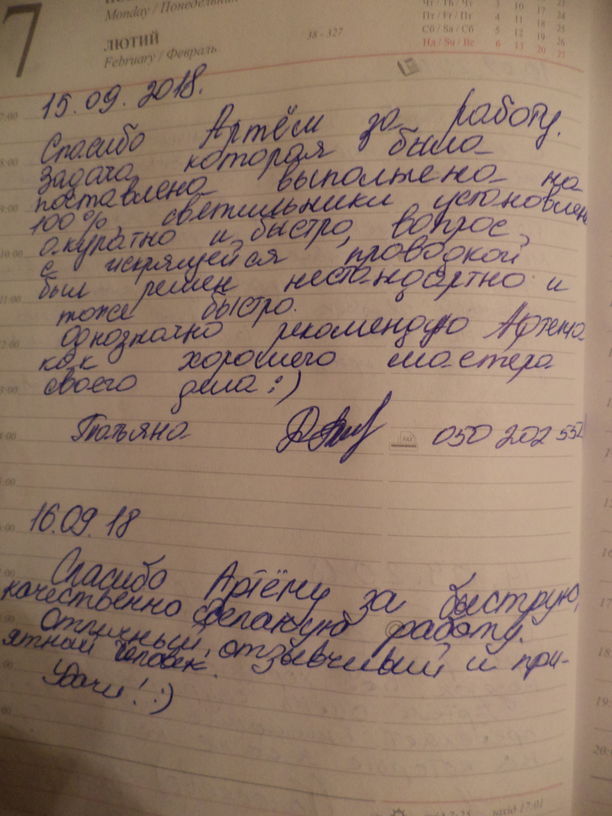 7
Monday / Понедельник
ЛЮТИЙ
February / Февраль
38 - 327
Чт / Th / Чт 3 10 17 24
Пт / Fr / Пт 4 11 18 25
Сб / Sa / Сб 5 12 19 26
Нд / Su / Вс 6 13 20 27
15.09.2018.
Спасибо Артём за работу.
Задача которая была
поставлена выполнена на
100%, светильники установлен
окуратно и быстро, вопрос
с искрящейся проводкой
был решен нестандартно и
тоже быстро.
Однозначно рекомендую Артёма
как хорошего мастера
своего дела :)
Татьяна 050 202 552
16.09.18
Спасибо Артёму за быструю,
качественно сделаную работу.
Отличный, отзывчивый и при-
ятный человек.
Удачи! :)